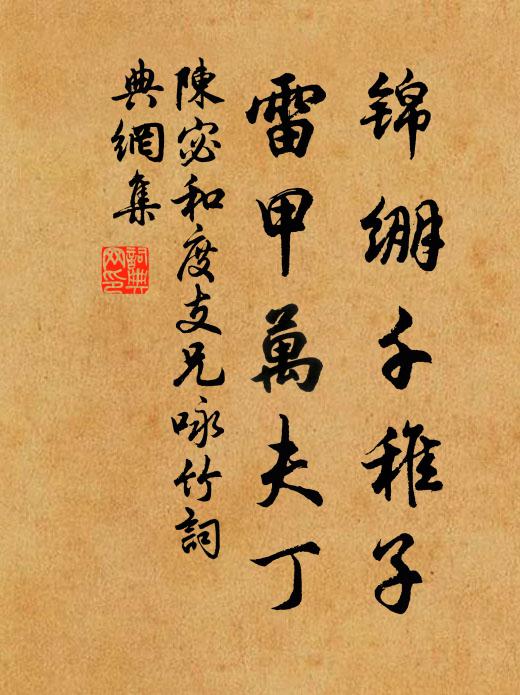 锦绷千稚子
雷甲萬夫丁
陳宓和度支兄咏竹詞
典網集
詞典
网印